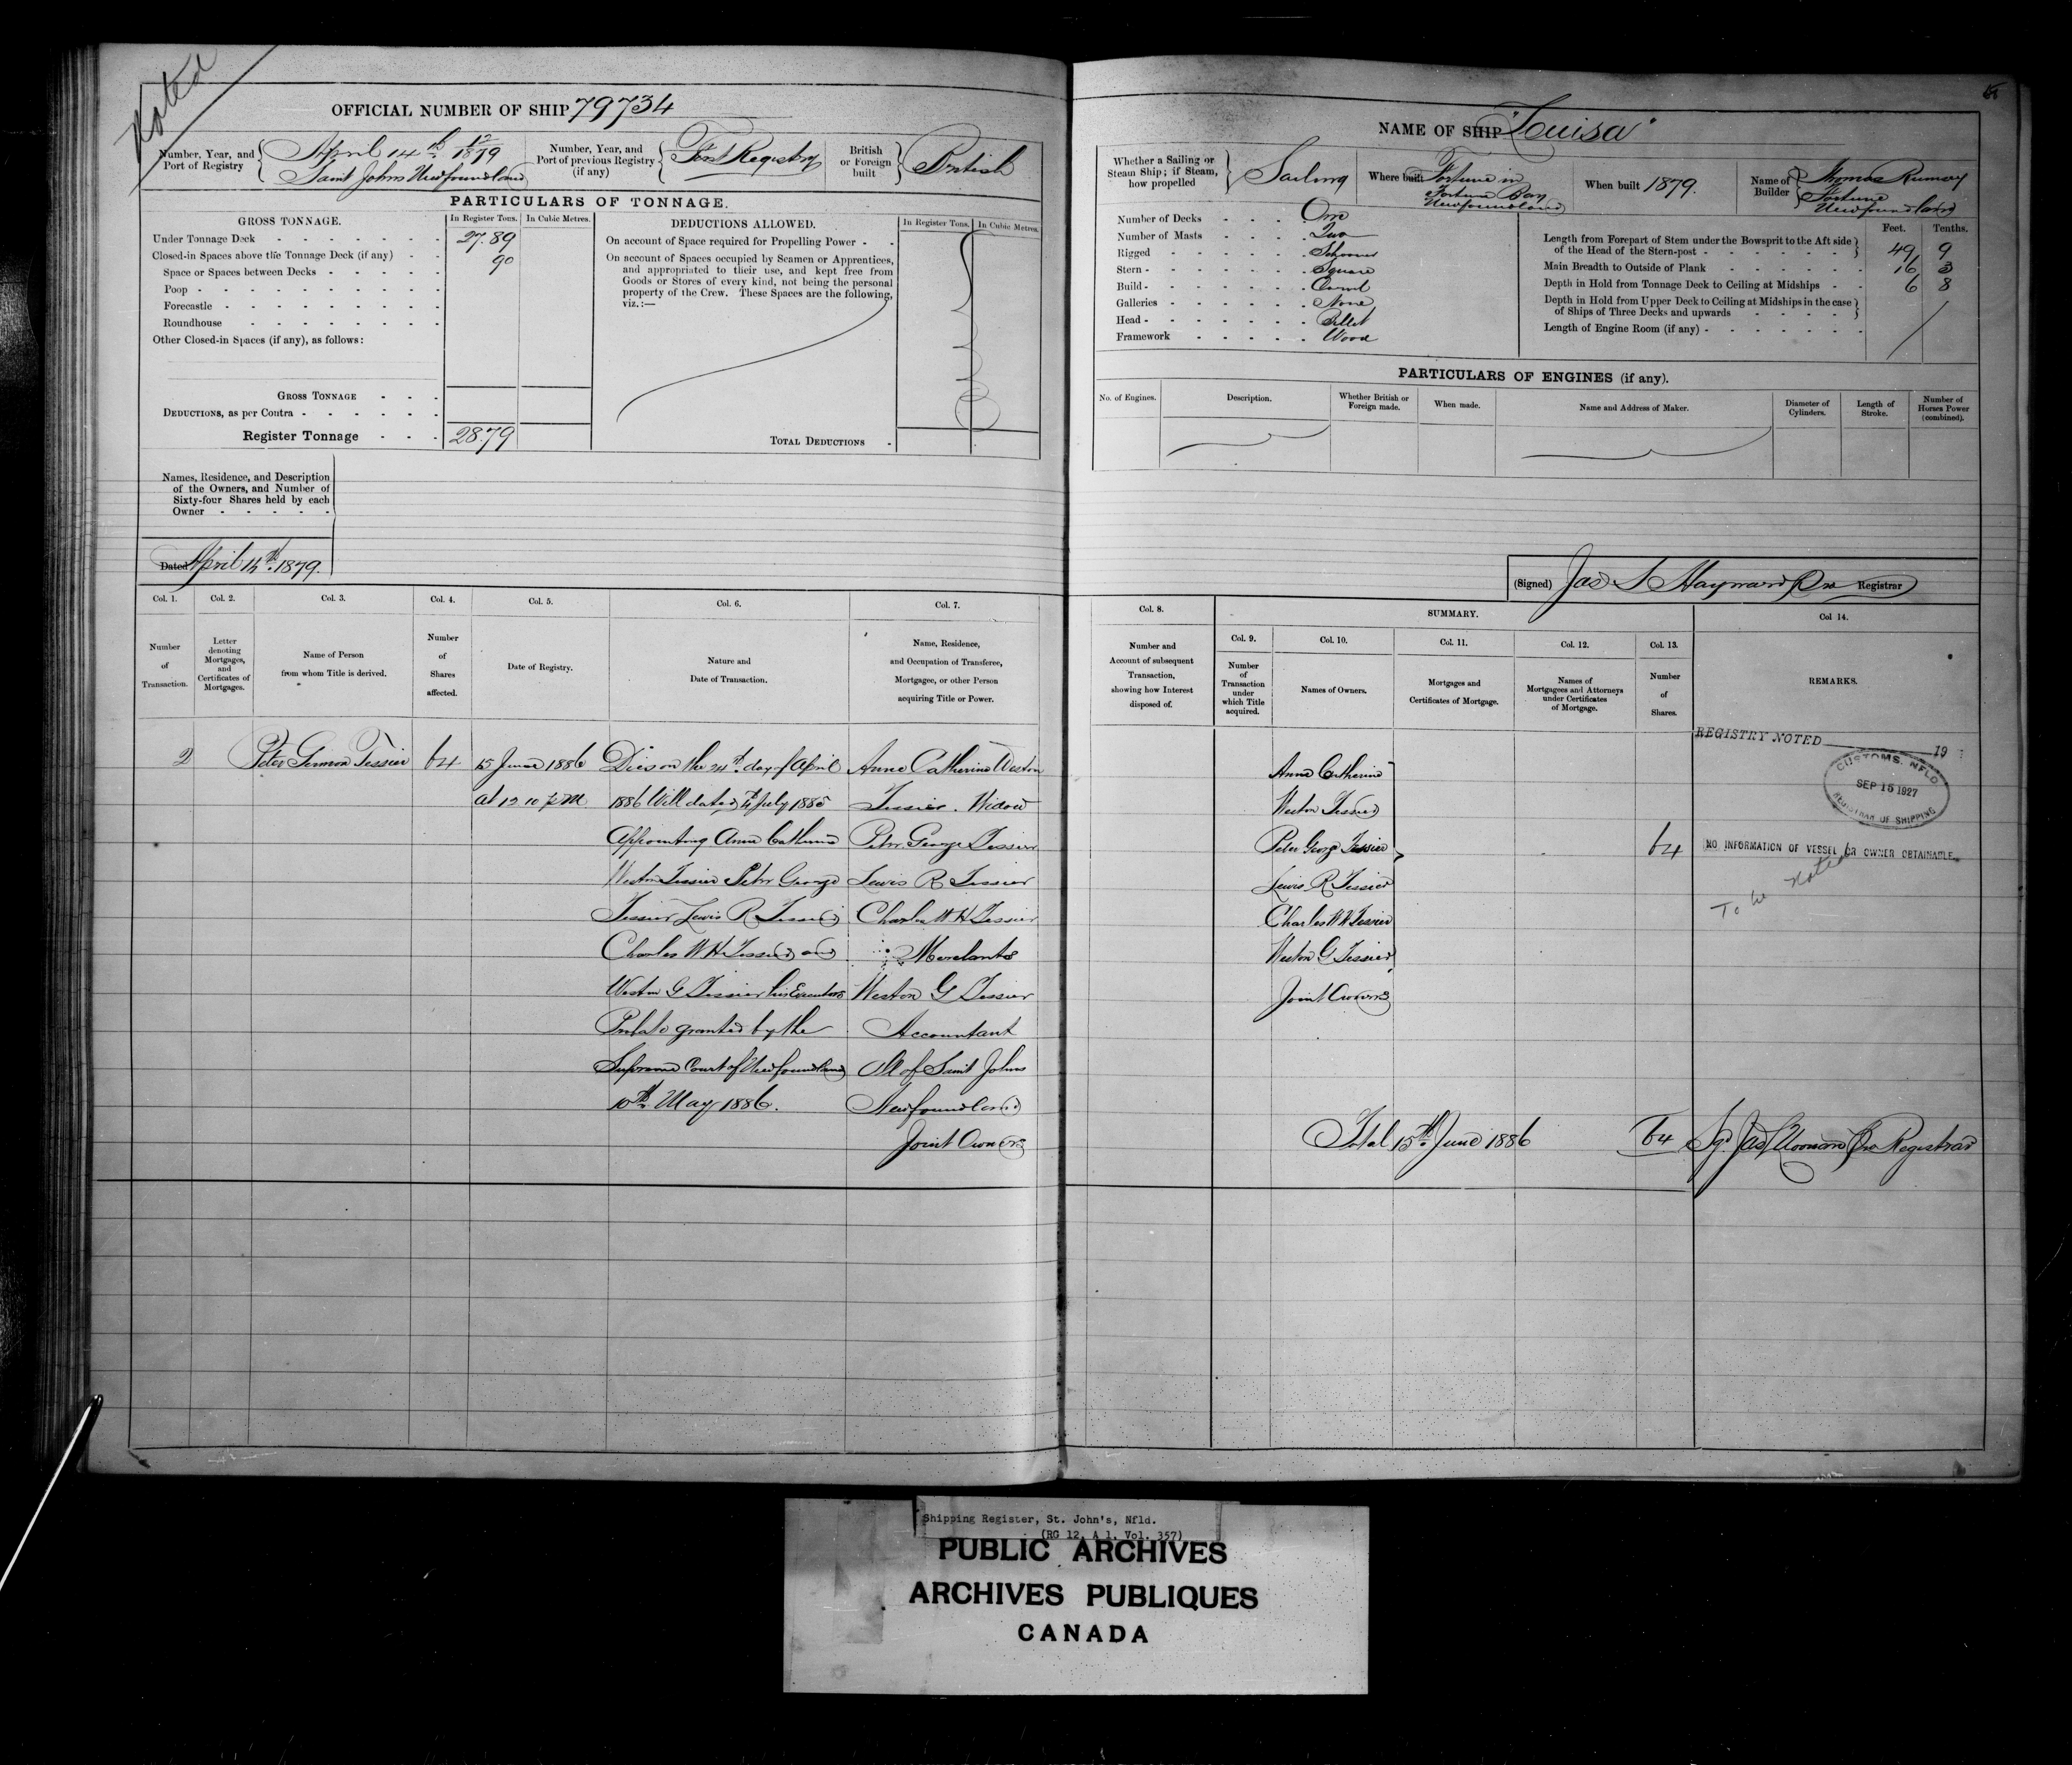 Noted
OFFICIAL NUMBER OF SHIP 79734
Number, Year, and Port of Registry
April 14th 12/1879
Saint Johns Newfoundland
Number, Year, and Port of previous Registry (if any)
First Registry
British or Foreign built
British
PARTICULARS OF TONNAGE.
GROSS TONNAGE.
In Register Tons.
In Cubic Metres.
Under Tonnage Deck 27.89
Closed-in Spaces above the Tonnage Deck (if any) 90
Space or Spaces between Decks
Poop
Forecastle
Roundhouse
Other Closed-in Spaces (if any), as follows:
GROSS TONNAGE
DEDUCTIONS, as per Contra
Register Tonnage 28.79
DEDUCTIONS ALLOWED.
In Register Tons.
In Cubic Metres.
On account of Space required for Propelling Power
On account of Spaces occupied by Seamen or Apprentices,
and appropriated to their use, and kept free from
Goods or Stores of every kind, not being the personal
property of the Crew. These Spaces are the following,
viz.:—
TOTAL DEDUCTIONS
Names, Residence, and Description
of the Owners, and Number of
Sixty-four Shares held by each
Owner
Dated April 14th 1879.
Col. 1.
Number of Transaction.
Col. 2.
Letter denoting Mortgages, and Certificates of Mortgages.
Col. 3.
Name of Person from whom Title is derived.
Col. 4.
Number of Shares affected.
Col. 5.
Date of Registry.
Col. 6.
Nature and Date of Transaction.
Col. 7.
Name, Residence, and Occupation of Transferee, Mortgagee, or other Person acquiring Title or Power.
2
Peter Tessier
64
15 June 1886
at 12 10 P.M.
Died on the 24th day of April
1886 Will dated 4th July 1885
Appointing Anne Catherine
Weston Tessier Peter George
Tessier Lewis R Tessier
Charles W H Tessier and
Weston G Tessier his Executors
Probate granted by the
Supreme Court of Newfoundland
10th May 1886.
Anne Catherine Weston
Tessier. Widow
Peter George Tessier
Lewis R Tessier
Charles W H Tessier
Merchants
Weston G Tessier
Accountant
All of Saint Johns
Newfoundland
Joint Owners
NAME OF SHIP "Louisa"
Whether a Sailing or Steam Ship; if Steam, how propelled
Sailing
Where built
Fortune in
Fortune Bay
Newfoundland
When built 1879.
Name of Builder
Thomas
Fortune
Newfoundland
Number of Decks One
Number of Masts Two
Rigged Schooner
Stern Square
Build Carvel
Galleries None
Head Billet
Framework Wood
Feet.
Tenths.
Length from Forepart of Stem under the Bowsprit to the Aft side of the Head of the Stern-post 49 9
Main Breadth to Outside of Plank 16 3
Depth in Hold from Tonnage Deck to Ceiling at Midships 6 8
Depth in Hold from Upper Deck to Ceiling at Midships in the case of Ships of Three Decks and upwards
Length of Engine Room (if any)
PARTICULARS OF ENGINES (if any).
No. of Engines.
Description.
Whether British or Foreign made.
When made.
Name and Address of Maker.
Diameter of Cylinders.
Length of Stroke.
Number of Horses Power (combined).
(Signed) Jas S Hayward Registrar
Col. 8.
Number and Account of subsequent Transaction, showing how Interest disposed of.
SUMMARY.
Col. 9.
Number of Transaction under which Title acquired.
Col. 10.
Names of Owners.
Col. 11.
Mortgages and Certificates of Mortgage.
Col. 12.
Names of Mortgagees and Attorneys under Certificates of Mortgage.
Col. 13.
Number of Shares.
Col 14.
REMARKS.
Anne Catherine
Weston Tessier
Peter George Tessier
Lewis R Tessier
Charles W H Tessier
Weston G Tessier
Joint Owners
64
REGISTRY NOTED 19
CUSTOMS, NFLD
SEP 15 1927
REGISTRAR OF SHIPPING
NO INFORMATION OF VESSEL OR OWNER OBTAINABLE.
To be Noted
Total 15th June 1886
64
Registrar
Shipping Register, St. John's, Nfld.
(RG 12, A 1, Vol. 357)
PUBLIC ARCHIVES
ARCHIVES PUBLIQUES
CANADA